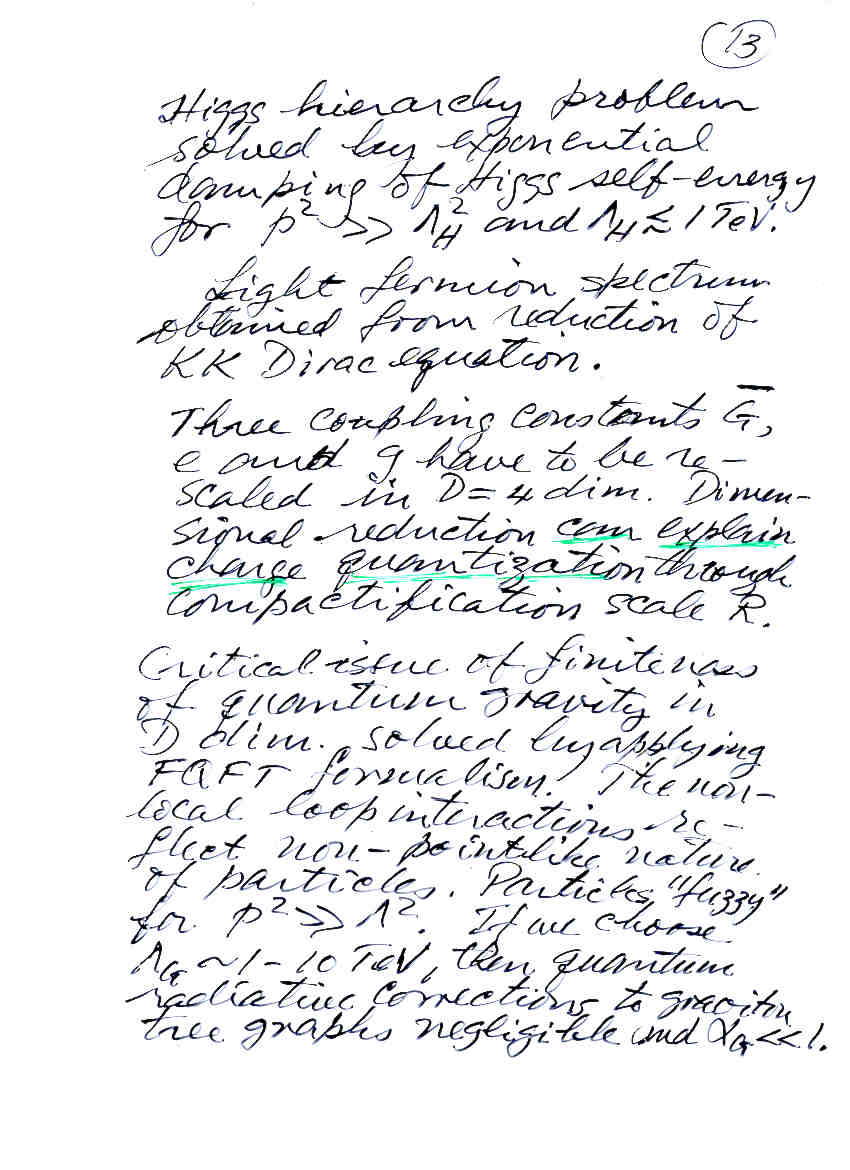 13
Higgs hierarchy problem
solved by exponential
damping of Higgs self-energy
for p² >> Λ_H² and Λ_H ≲ 1 TeV.
Light fermion spectrum
obtained from reduction of
KK Dirac equation.
Three coupling constants G̅,
e and g have to be re-
scaled in D=4 dim. Dimen-
sional reduction can explain
charge quantization through
compactification scale R.
Critical issue of finiteness
of quantum gravity in
D dim. solved by applying
FQFT formalism. The non-
local loop interactions re-
flect non-pointlike nature
of particles. Particles "fuzzy"
for p² >> Λ². If we choose
Λ_G ~ 1-10 TeV, then quantum
radiative corrections to graviton
tree graphs negligible and α_G << 1.